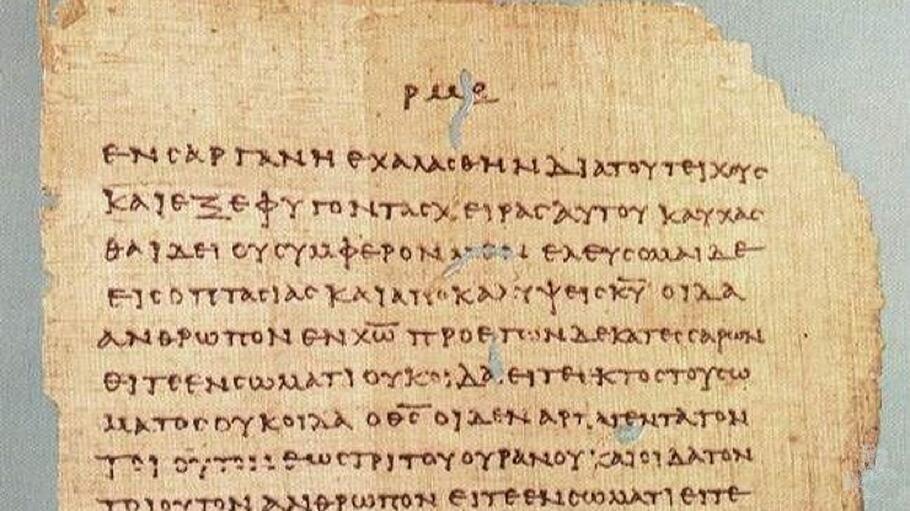 ρμε
ΕΝϹΑΡΓΑΝΗΕΧΑΛΑϹΘΗΝΔΙΑΤΟΥΤΕΙΧΟΥϹ
ΚΑΙΕΞΕΦΥΓΟΝΤΑϹΧΕΙΡΑϹΑΥΤΟΥΚΑΥΧΑϹ
ΘΑΙΔΕΙΟΥϹΥΜΦΕΡΟΝ ΕΛΕΥϹΟΜΑΙΔΕ
ΕΙϹΟΠΤΑϹΙΑϹΚΑΙΑΠΟΚΑΛΥΨΕΙϹΚ̅Υ̅ΟΙΔΑ
ΑΝΘΡΩΠΟΝΕΝΧ̅Ω̅ΠΡΟΕΤΩΝΔΕΚΑΤΕϹϹΑΡΩΝ
ΕΙΤΕΕΝϹΩΜΑΤΙΟΥΚΟΙΔΑΕΙΤΕΕΚΤΟϹΤΟΥϹΩ
ΜΑΤΟϹΟΥΚΟΙΔΑΟΘ̅Ϲ̅ΟΙΔΕΝΑΡΠΑΓΕΝΤΑΤΟΝ
ΤΟΙΟΥΤΟΝΕΩϹΤΡΙΤΟΥΟΥΡΑΝΟΥΚΑΙΟΙΔΑΤΟΝ
ΤΟΙΟΥΤΟΝΑΝΘΡΩΠΟΝΕΙΤΕΕΝϹΩΜΑΤΙΕΙΤΕ